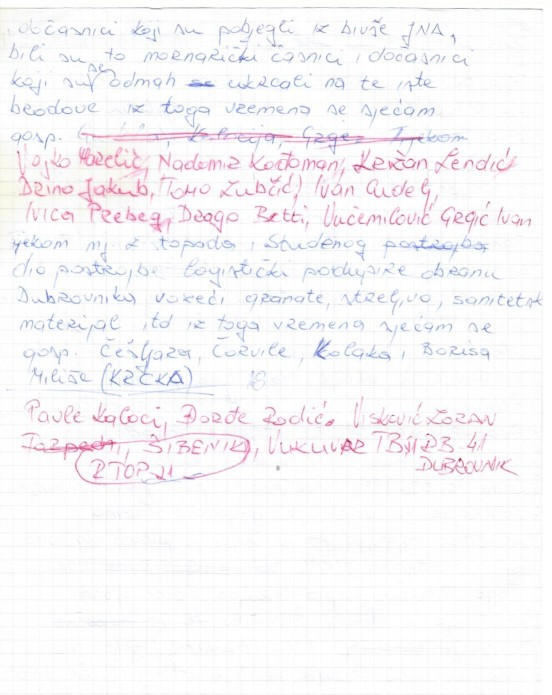 i dočasnici koji su pobjegli iz bivše JNA,
bili su to mornarički časnici i dočasnici
koji su se odmah ukrcali na te iste
brodove iz toga vremena se sjećam
gosp.
Vojko Marelić, Nadomir Kočoman, Križan Lendić
Dzino Jakub, Tomo Zubčić, Ivan Anđelj,
Ivica Prebeg, Drago Betti, Vučemilović Grgić Ivan
tijekom mj listopada i studenog postrojba
dio postrojbe logistički podupire obranu
Dubrovnika vozeći granate, streljivo, sanitetsk
materijal, itd iz toga vremena sjećam se
gosp. Češljara, Čorvile, Kolaka, Borisa
Miliše (KRČKA)
Pavle Kaloci, Đorđe Rodić, Viskević ZORAN
ŠIBENIK, VUKUVAR TB 41 RB-41
RTOP-21 DUBROVNIK